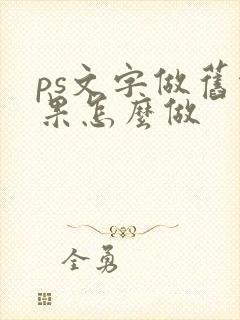 ps文字做舊
果怎麼做
全勇